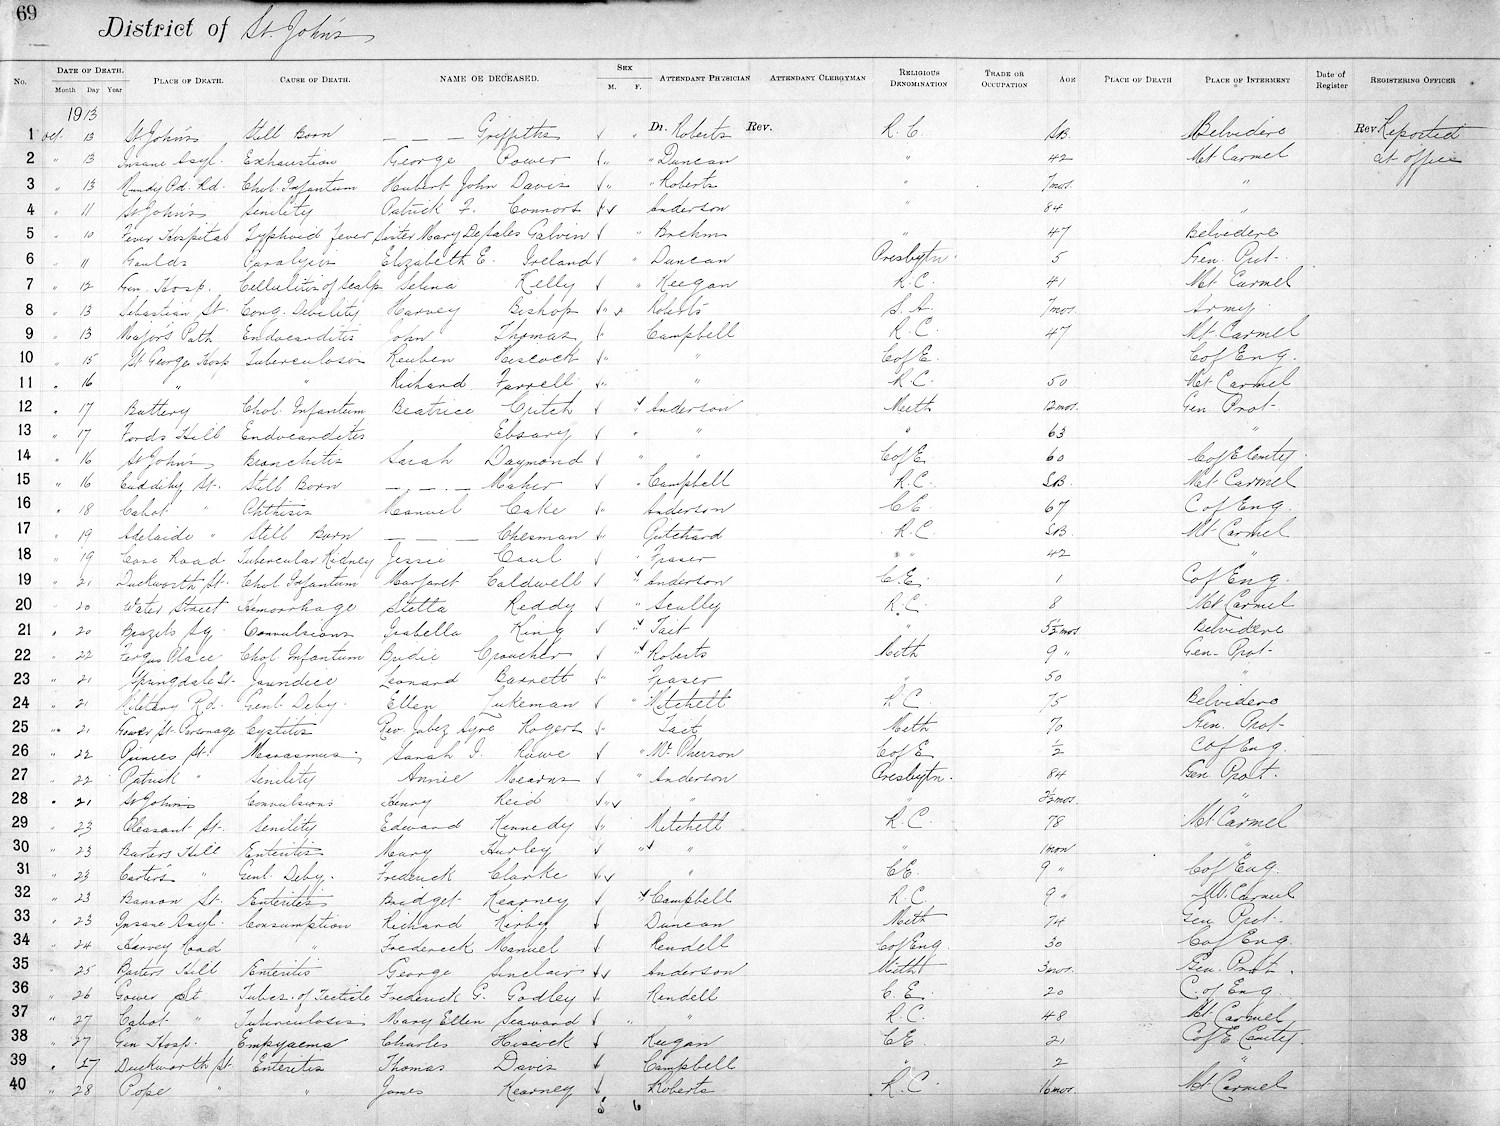 69
District of St. John's
No. DATE OF DEATH. Month Day Year PLACE OF DEATH. CAUSE OF DEATH. NAME OF DECEASED. SEX M. F. ATTENDANT PHYSICIAN ATTENDANT CLERGYMAN RELIGIOUS DENOMINATION TRADE OR OCCUPATION AGE PLACE OF DEATH PLACE OF INTERMENT Date of Register REGISTERING OFFICER
1913
1 Oct 13 St John's Still Born — — — Griffiths Dr. Roberts Rev. R. C. SB Belvidere Rev. Reported
2 " 13 Insane Asyl. Exhaustion George Power " Duncan " 42 Mt Carmel at office
3 " 13 Mundy Pd. Rd. Chol. Infantum Hubert John Davis " Roberts " 7 mos. "
4 " 11 St John's Senility Patrick F. Connors Anderson " 84 "
5 " 10 Fever Hospital Typhoid Fever Sister Mary DeSales Galvin " Brehm " 47 Belvidere
6 " 11 Goulds Paralysis Elizabeth E. Ireland " Duncan Presbytn. 5 Gen. Prot.
7 " 12 Gen. Hosp. Cellulitis of Scalp Selina Kelly " Keegan R. C. 41 Mt Carmel
8 " 13 Sebastian St. Cong. Debility Harvey Bishop Roberts S. A. 7 mos. Army
9 " 13 Major's Path Endocarditis John Thomas " Campbell R. C. 47 Mt Carmel
10 " 15 St George's Hosp Tuberculosis Reuben Hiscock " " C of E. C of Eng.
11 " 16 " " Richard Farrell " " R. C. 50 Mt Carmel
12 " 17 Battery Chol. Infantum Beatrice Critch " Anderson Meth 12 mos. Gen Prot.
13 " 17 Fords Hill Endocarditis Ebsary " " " 63 "
14 " 16 St John's Bronchitis Sarah Daymond " " C of E 60 C of E Cmty.
15 " 16 Cuddihy St. Still Born — — — Maher " Campbell R. C. SB Mt Carmel
16 " 18 Cabot " Phthisis Manuel Cake " Anderson C E. 67 C of Eng.
17 " 19 Adelaide " Still Born — — — Chesman " R. C. SB Mt Carmel
18 " 19 Road Tubercular Kidney Jessie Caul " Fraser " " 42 "
19 " 21 Duckworth St. Chol Infantum Margaret Caldwell " Anderson C. E. 1 C of Eng.
20 " 20 Water Street Hemorrhage Stella Reddy " Scully R. C. 8 Mt Carmel
21 " 20 Brazils Sq. Convulsions Isabella King " Tait " 5½ mos Belvidere
22 " 22 Fergus Place Chol Infantum Bride Croucher " Roberts Meth 9 " Gen. Prot.
23 " 21 Springdale St. Jaundice Leonard Barrett " Fraser " 50 "
24 " 21 Military Rd. Genl. Deby. Ellen Tukeman " Mitchell R. C. 75 Belvidere
25 " 21 Gower St. Parsonage Cystitis Rev. Jabez Ayre Rogers " Tait Meth 70 Gen. Prot
26 " 22 Princes St. Marasmus Sarah J. Rowe " McPherson C of E ½ C of Eng.
27 " 22 Patrick " Senility Annie Mearns " Anderson Presbytn. 84 Gen Prot.
28 " 21 St John's Convulsions Henry Reid " " " 2½ mos. "
29 " 23 Pleasant St. Senility Edward Kennedy " Mitchell R. C. 78 Mt Carmel
30 " 23 Barters Hill Enteritis Mary Hurley " " " 1 mon "
31 " 23 Carter's " Genl. Deby. Frederick Clarke " C E. 9 " C of Eng.
32 " 23 Bannon St. Enteritis Bridget Kearney Campbell R. C. 9 " Mt. Carmel
33 " 23 Insane Asyl. Consumption Richard Kirby Duncan Meth 74 Gen. Prot.
34 " 24 Harvey Road " Frederick Manuel Rendell C of Eng. 30 C of Eng.
35 " 25 Barters Hill Enteritis George Sinclair Anderson Meth 3 mos. Gen. Prot.
36 " 26 Gower St Tuber. of Testicle Frederick G. Godley Rendell C. E. 20 C. of Eng.
37 " 27 Cabot " Tuberculosis Mary Ellen Seaward " " R. C. 48 Mt. Carmel
38 " 27 Gen Hosp. Empyaema Charles Hiscock Keegan C E. 21 C of E Cmty.
39 " 27 Duckworth St. Enteritis Thomas Davis Campbell " 2 "
40 " 28 Pope " " James Kearney Roberts R. C. 16 mos. Mt Carmel
5 6